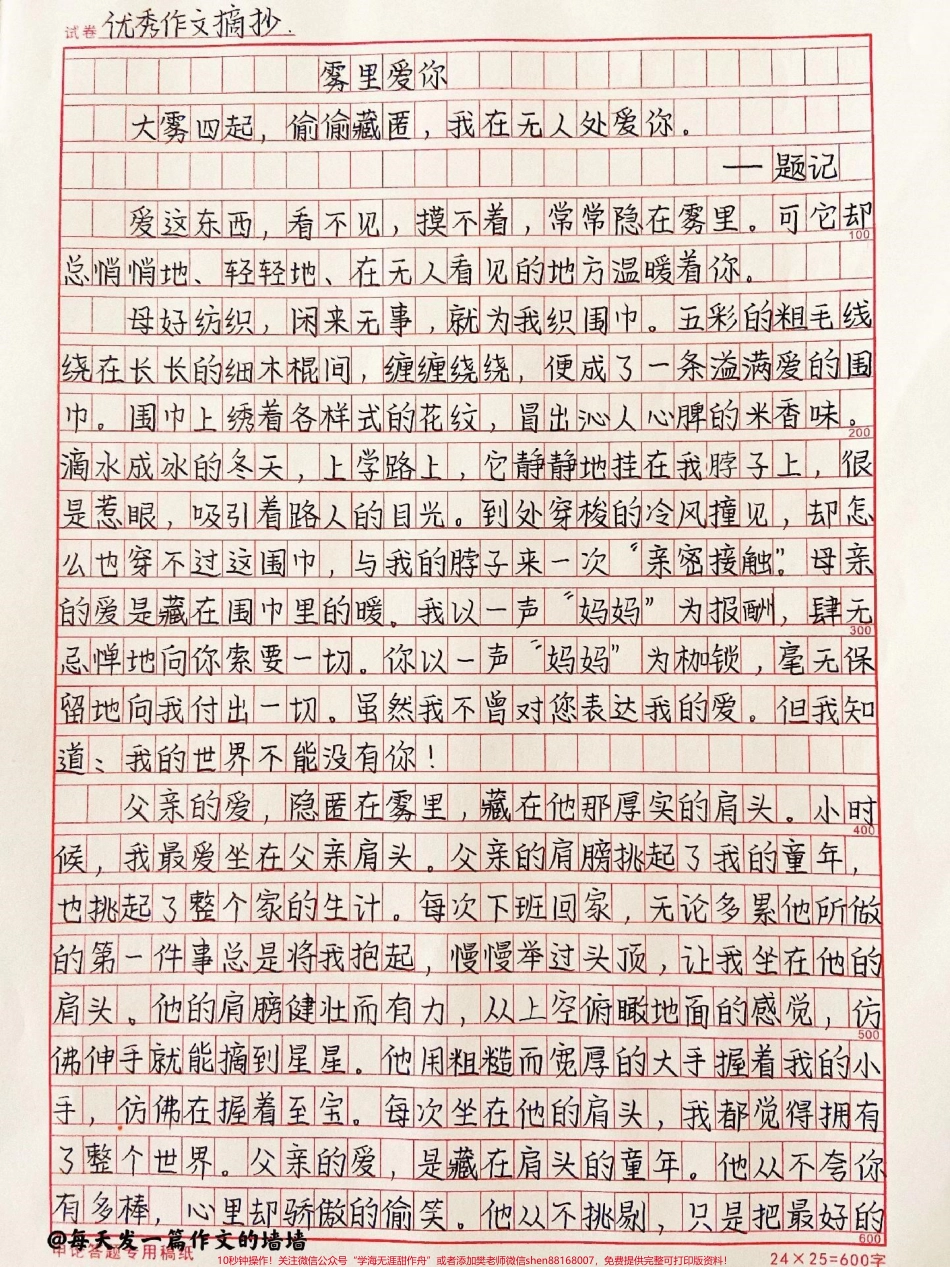 试卷 优秀作文摘抄.
雾里爱你
大雾四起，偷偷藏匿，我在无人处爱你。
——题记
爱这东西，看不见，摸不着，常常隐在雾里。可它却
100
总悄悄地、轻轻地、在无人看见的地方温暖着你。
母好纺织，闲来无事，就为我织围巾。五彩的粗毛线
绕在长长的细木棍间，缠缠绕绕，便成了一条溢满爱的围
巾。围巾上绣着各样式的花纹，冒出沁人心脾的米香味。
200
滴水成冰的冬天，上学路上，它静静地挂在我脖子上，很
是惹眼，吸引着路人的目光。到处穿梭的冷风撞见，却怎
么也穿不过这围巾，与我的脖子来一次“亲密接触”。母亲
的爱是藏在围巾里的暖。我以一声“妈妈”为报酬，肆无
300
忌惮地向你索要一切。你以一声“妈妈”为枷锁，毫无保
留地向我付出一切。虽然我不曾对您表达我的爱。但我知
道：我的世界不能没有你！
父亲的爱，隐匿在雾里，藏在他那厚实的肩头。小时
400
候，我最爱坐在父亲肩头。父亲的肩膀挑起了我的童年，
也挑起了整个家的生计。每次下班回家，无论多累他所做
的第一件事总是将我抱起，慢慢举过头顶，让我坐在他的
肩头。他的肩膀健壮而有力，从上空俯瞰地面的感觉，仿
500
佛伸手就能摘到星星。他用粗糙而宽厚的大手握着我的小
手，仿佛在握着至宝。每次坐在他的肩头，我都觉得拥有
了整个世界。父亲的爱，是藏在肩头的童年。他从不夸你
有多棒，心里却骄傲的偷笑。他从不挑剔，只是把最好的
600
@每天发一篇作文的墙墙
申论答题专用稿纸
24×25=600字
10秒钟操作！关注微信公众号“学海无涯甜作舟”或者添加樊老师微信shen88168007，免费提供完整可打印版资料！